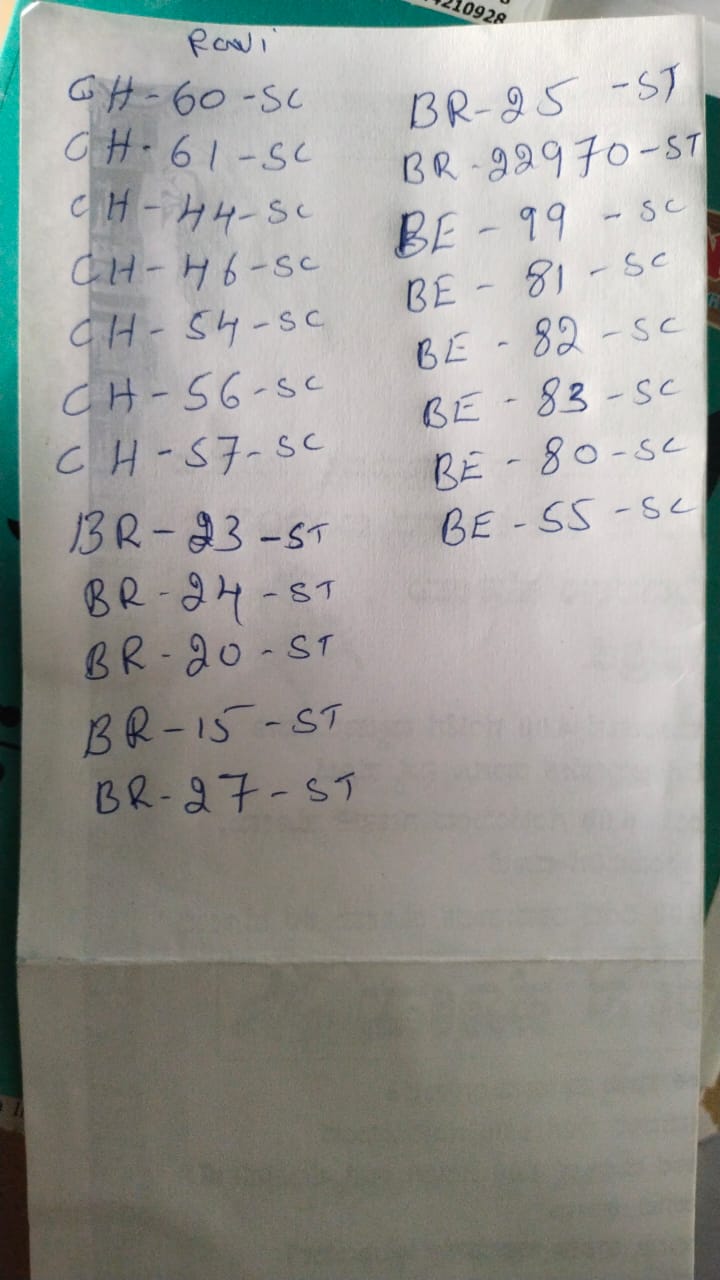 4210928
Ravi
CH-60-SC
CH-61-SC
CH-44-SC
CH-46-SC
CH-54-SC
CH-56-SC
CH-57-SC
BR-23-ST
BR-24-ST
BR-20-ST
BR-15-ST
BR-27-ST
BR-25-ST
BR-22970-ST
BE-99-SC
BE-81-SC
BE-82-SC
BE-83-SC
BE-80-SC
BE-55-SC